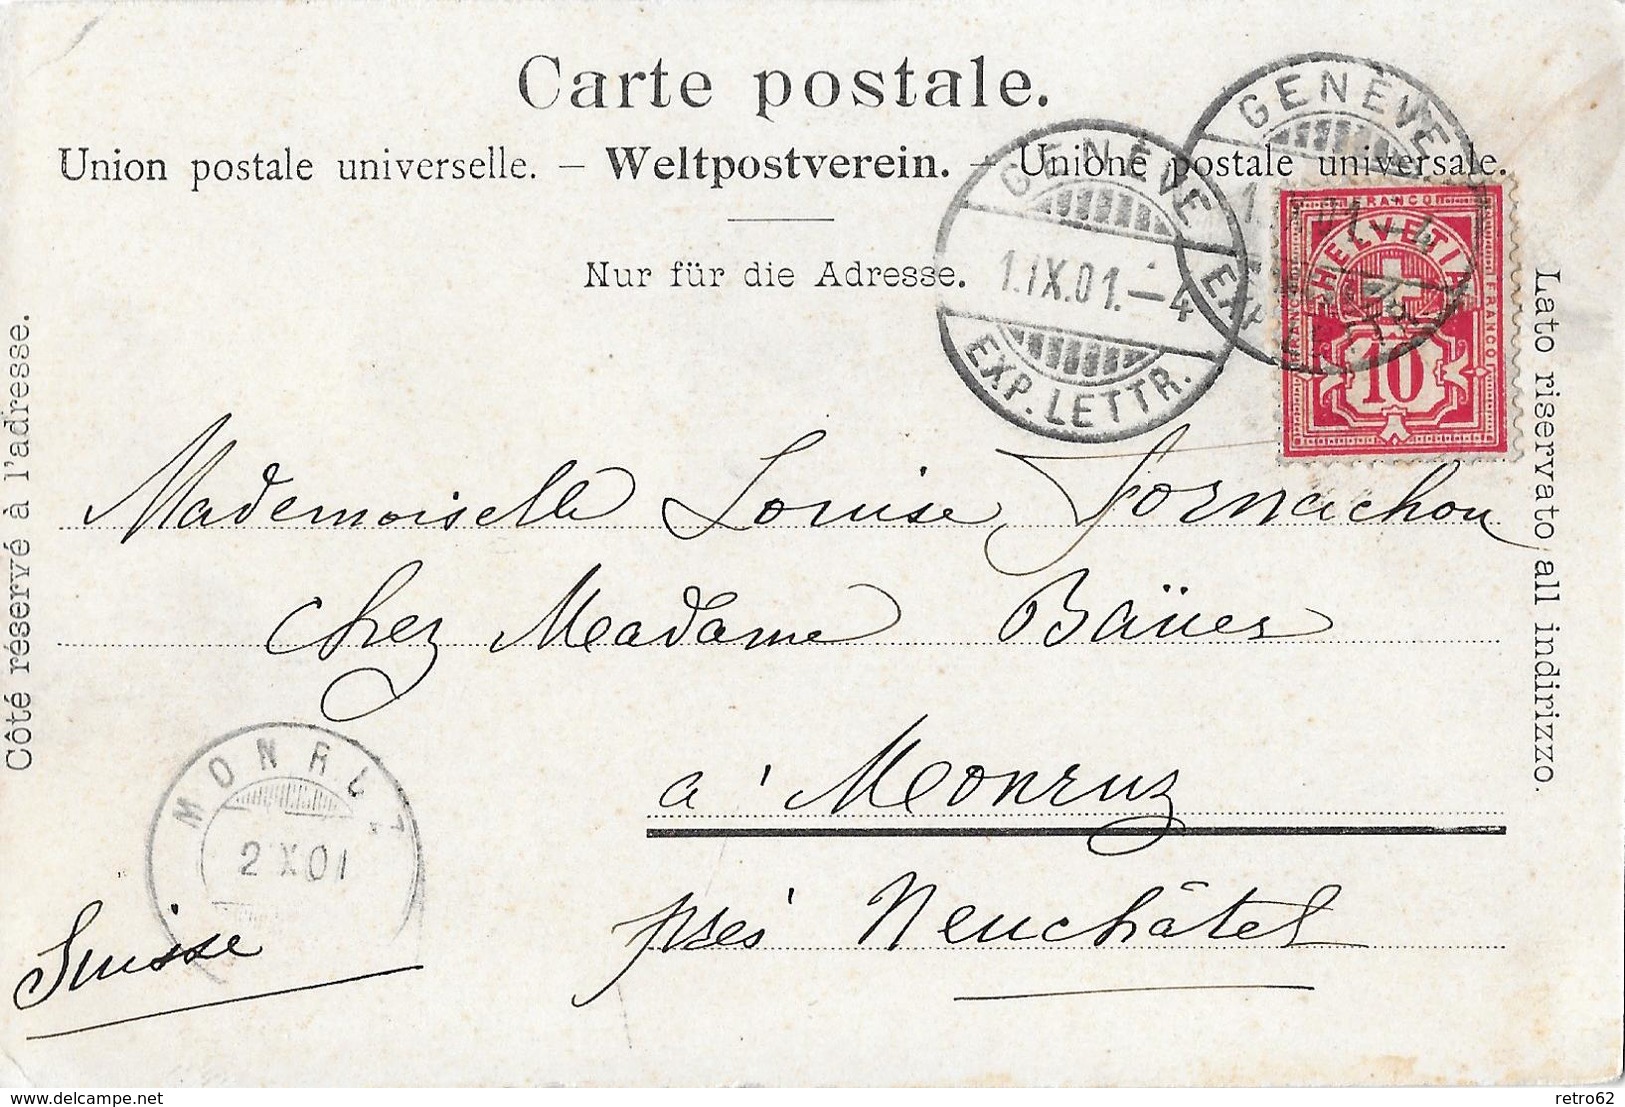 Carte postale.
Union postale universelle. – Weltpostverein. – Unione postale universale.
Nur für die Adresse.
Côté réservé à l'adresse.
Lato riservato all indirizzo.
GENÈVE
1.IX.01.–4
EXP. LETTR.
GENÈVE
FRANCO
HELVETIA
FRANCO
FRANCO
10
Mademoiselle Louise Fornachon
chez Madame Baüer
à Monruz
près Neuchâtel
Suisse
MONRUZ
2 X 01
delcampe.net
retro62